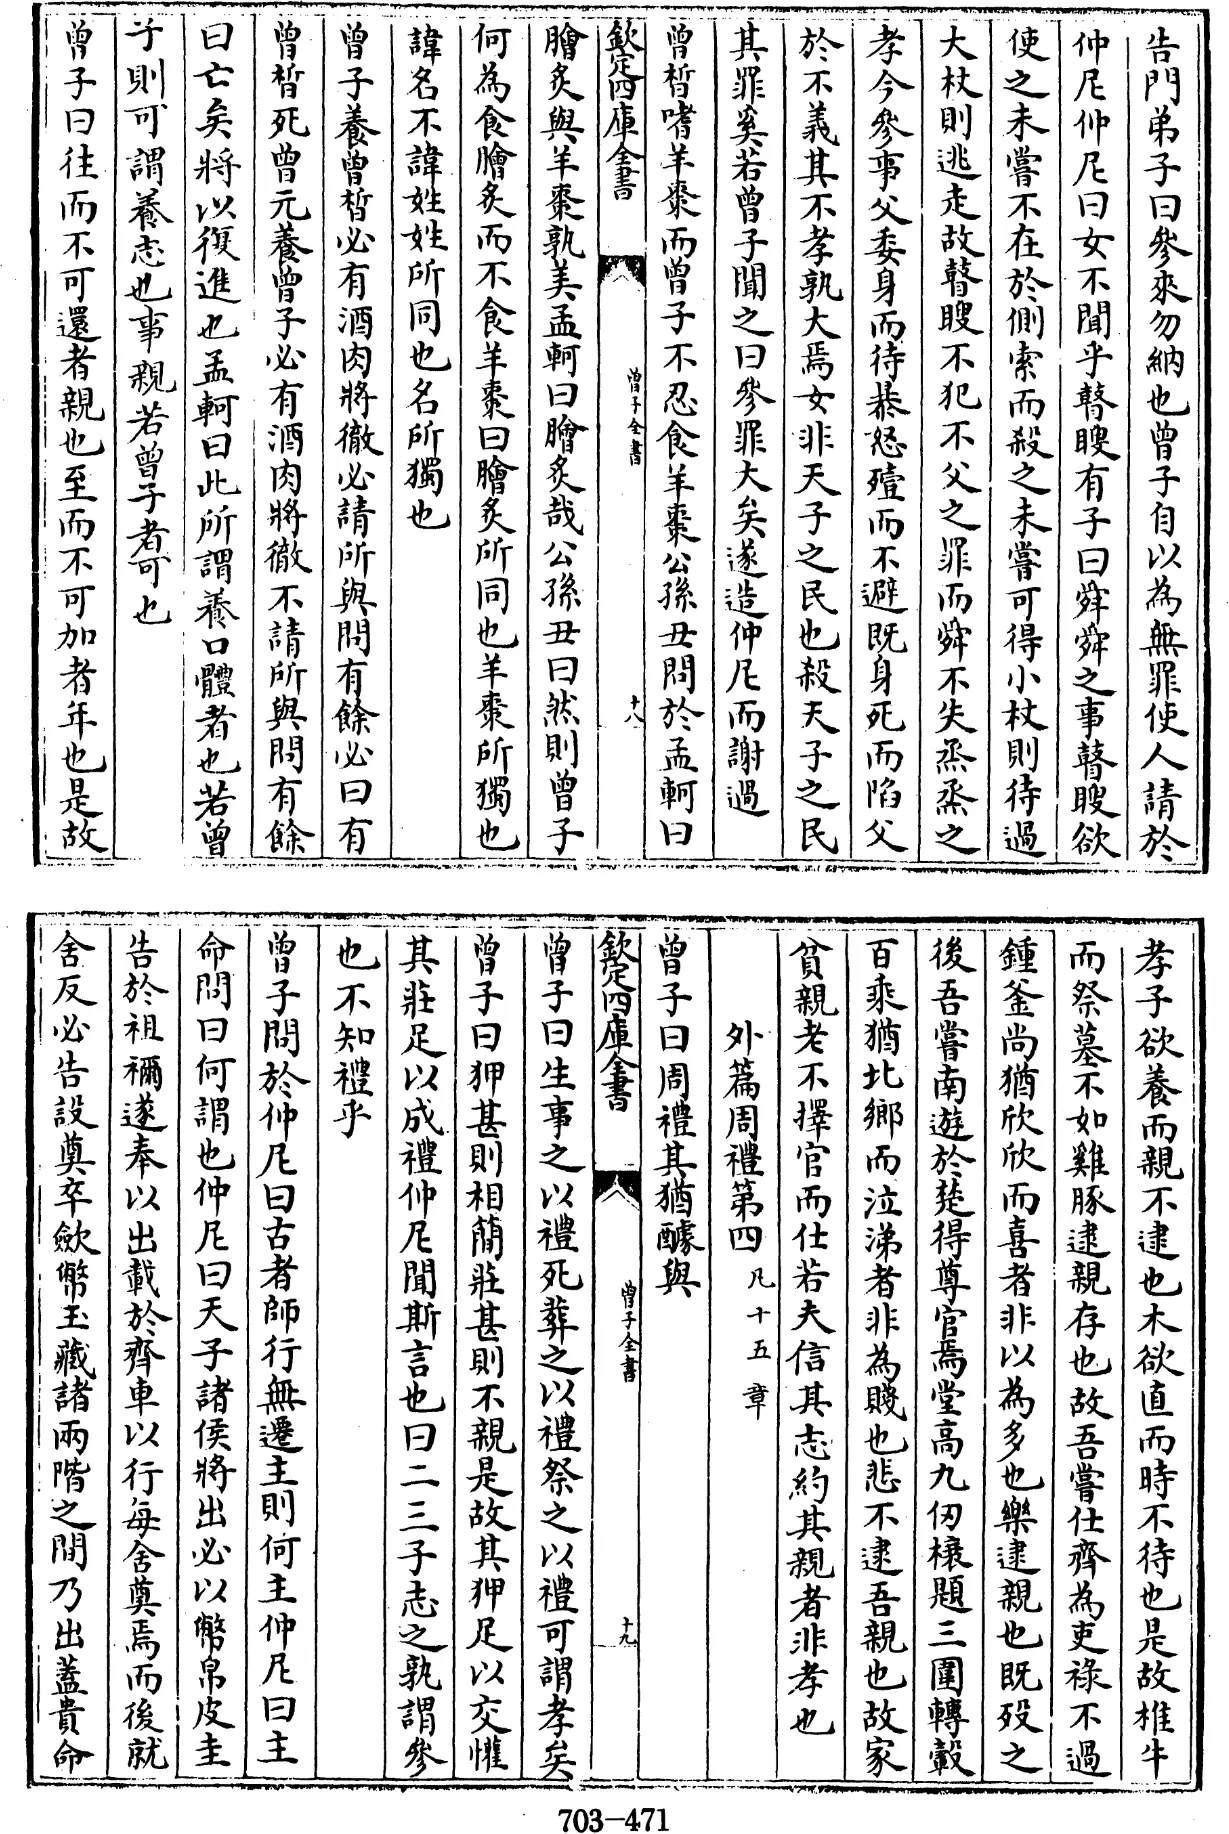 告門弟子曰參來勿納也曾子自以為無罪使人請於
仲尼仲尼曰女不聞乎瞽瞍有子曰舜舜之事瞽瞍欲
使之未嘗不在於側索而殺之未嘗可得小杖則待過
大杖則逃走故瞽瞍不犯不父之罪而舜不失烝烝之
孝今參事父委身而待暴怒殪而不避既身死而陷父
於不義其不孝孰大焉女非天子之民也殺天子之民
其罪奚若曾子聞之曰參罪大矣遂造仲尼而謝過
曾皙嗜羊棗而曾子不忍食羊棗公孫丑問於孟軻曰
欽定四庫全書
曾子全書
十八
膾炙與羊棗孰美孟軻曰膾炙哉公孫丑曰然則曾子
何為食膾炙而不食羊棗曰膾炙所同也羊棗所獨也
諱名不諱姓姓所同也名所獨也
曾子養曾皙必有酒肉將徹必請所與問有餘必曰有
曾皙死曾元養曾子必有酒肉將徹不請所與問有餘
曰亡矣將以復進也孟軻曰此所謂養口體者也若曾
子則可謂養志也事親若曾子者可也
曾子曰往而不可還者親也至而不可加者年也是故
孝子欲養而親不逮也木欲直而時不待也是故椎牛
而祭墓不如雞豚逮親存也故吾嘗仕齊為吏祿不過
鍾釜尚猶欣欣而喜者非以為多也樂逮親也既歿之
後吾嘗南遊於楚得尊官焉堂高九仞榱題三圍轉轂
百乘猶北鄉而泣涕者非為賤也悲不逮吾親也故家
貧親老不擇官而仕若夫信其志約其親者非孝也
外篇周禮第四 凡十五章
曾子曰周禮其猶醵與
欽定四庫全書
曾子全書
十九
曾子曰生事之以禮死葬之以禮祭之以禮可謂孝矣
曾子曰狎甚則相簡莊甚則不親是故其狎足以交懽
其莊足以成禮仲尼聞斯言也曰二三子志之孰謂參
也不知禮乎
曾子問於仲尼曰古者師行無遷主則何主仲尼曰主
命問曰何謂也仲尼曰天子諸侯將出必以幣帛皮圭
告於祖禰遂奉以出載於齊車以行每舍奠焉而後就
舍反必告設奠卒歛幣玉藏諸兩階之間乃出蓋貴命
703-471